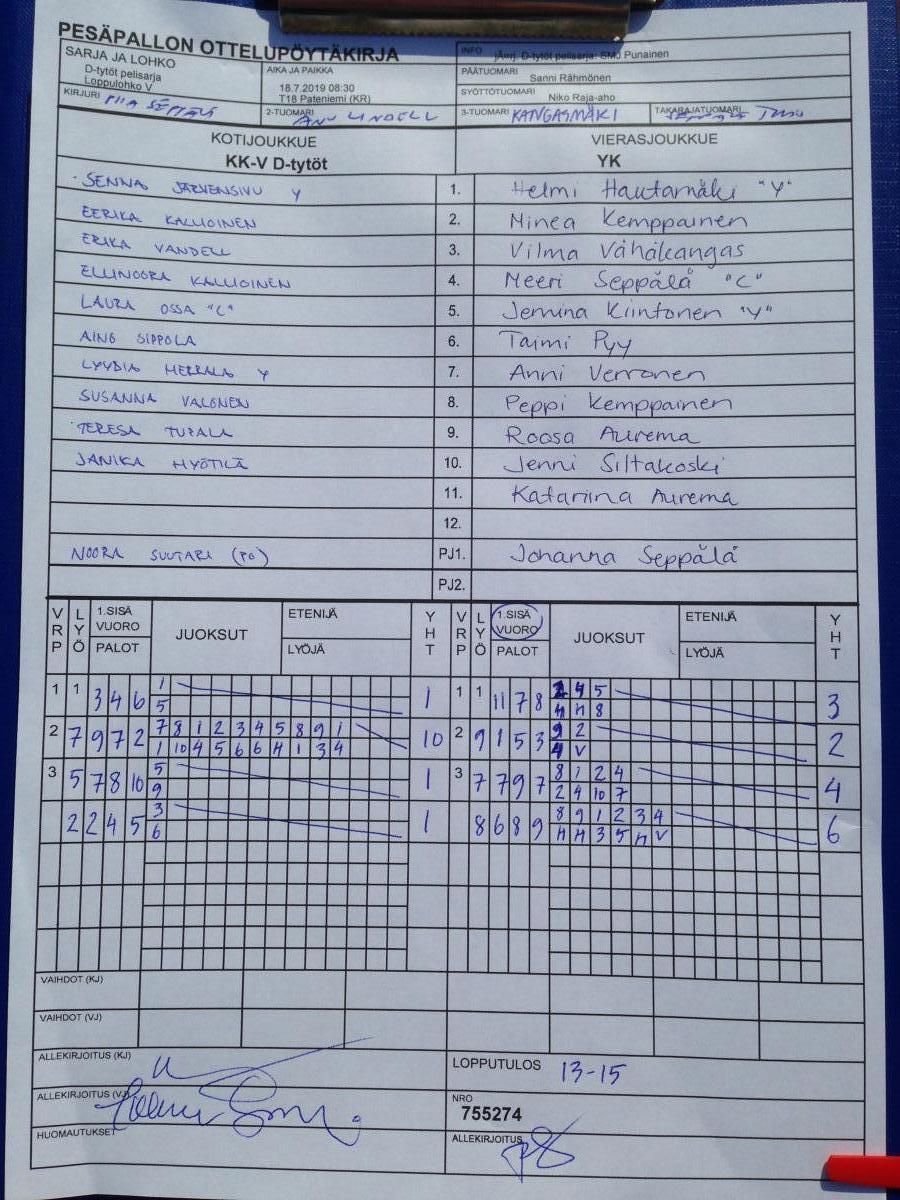 PESÄPALLON OTTELUPÖYTÄKIRJA
SARJA JA LOHKO
D-tytöt pelisarja
Loppulohko V
AIKA JA PAIKKA
18.7.2019 08:30
T18 Pateniemi (KR)
INFO jÄnrj. D-tytöt pelisarja: SMJ Punainen
PÄÄTUOMARI Sanni Rähmönen
SYÖTTÖTUOMARI Niko Raja-aho
KIRJURI PIIA SEPPÄLÄ
2-TUOMARI ANU LINDELL
3-TUOMARI KANGASMÄKI
TAKARAJATUOMARI
KOTIJOUKKUE
KK-V D-tytöt
VIERASJOUKKUE
YK
SENNA JÄRVENSIVU Y 1. Helmi Hautamäki "Y"
EERIKA KALLIOINEN 2. Minea Kemppainen
ERIKA VANDELL 3. Vilma Vähäkangas
ELLINOORA KALLIOINEN 4. Meeri Seppälä "C"
LAURA OSSA "C" 5. Jemina Kiintonen "Y"
AINO SIPPOLA 6. Taimi Pyy
LYYDIA MERRALA Y 7. Anni Verronen
SUSANNA VALONEN 8. Peppi Kemppainen
TERESA TUPALA 9. Roosa Aurema
JANIKA HYÖTILÄ 10. Jenni Siltakoski
11. Katariina Aurema
12.
NOORA SUUTARI (PÖ) PJ1. Johanna Seppälä
PJ2.
VRP LYÖ 1.SISÄ VUORO PALOT JUOKSUT ETENIJÄ LYÖJÄ YHT VRP LYÖ 1.SISÄ VUORO PALOT JUOKSUT ETENIJÄ LYÖJÄ YHT
1 1 3 4 6 1 1 1 1 11 7 8 2 4 5 3
5 H H 8
2 7 9 7 2 7 8 1 2 3 4 5 8 9 1 10 2 9 1 5 3 9 2 2
1 10 4 5 6 6 H 1 3 4 4 V
3 5 7 8 10 5 1 3 7 7 9 7 8 1 2 4 4
9 2 9 10 7
2 2 4 5 3 1 8 6 8 9 8 9 1 2 3 4 6
6 H H 3 5 H V
VAIHDOT (KJ)
VAIHDOT (VJ)
ALLEKIRJOITUS (KJ)
LOPPUTULOS 13-15
ALLEKIRJOITUS (VJ)
NRO
755274
HUOMAUTUKSET
ALLEKIRJOITUS